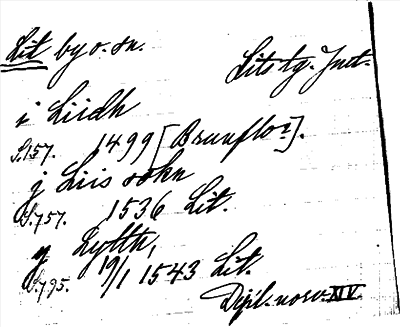 Lit by o. sn. Lits tg. Jmt.
i Liidh
S.157. 1499 [Brunflor].
j Liis sokn
S.757. 1536 Lit.
y Lytth,
S.795. 19/1 1543 Lit.
Dipl. norv. XIV.